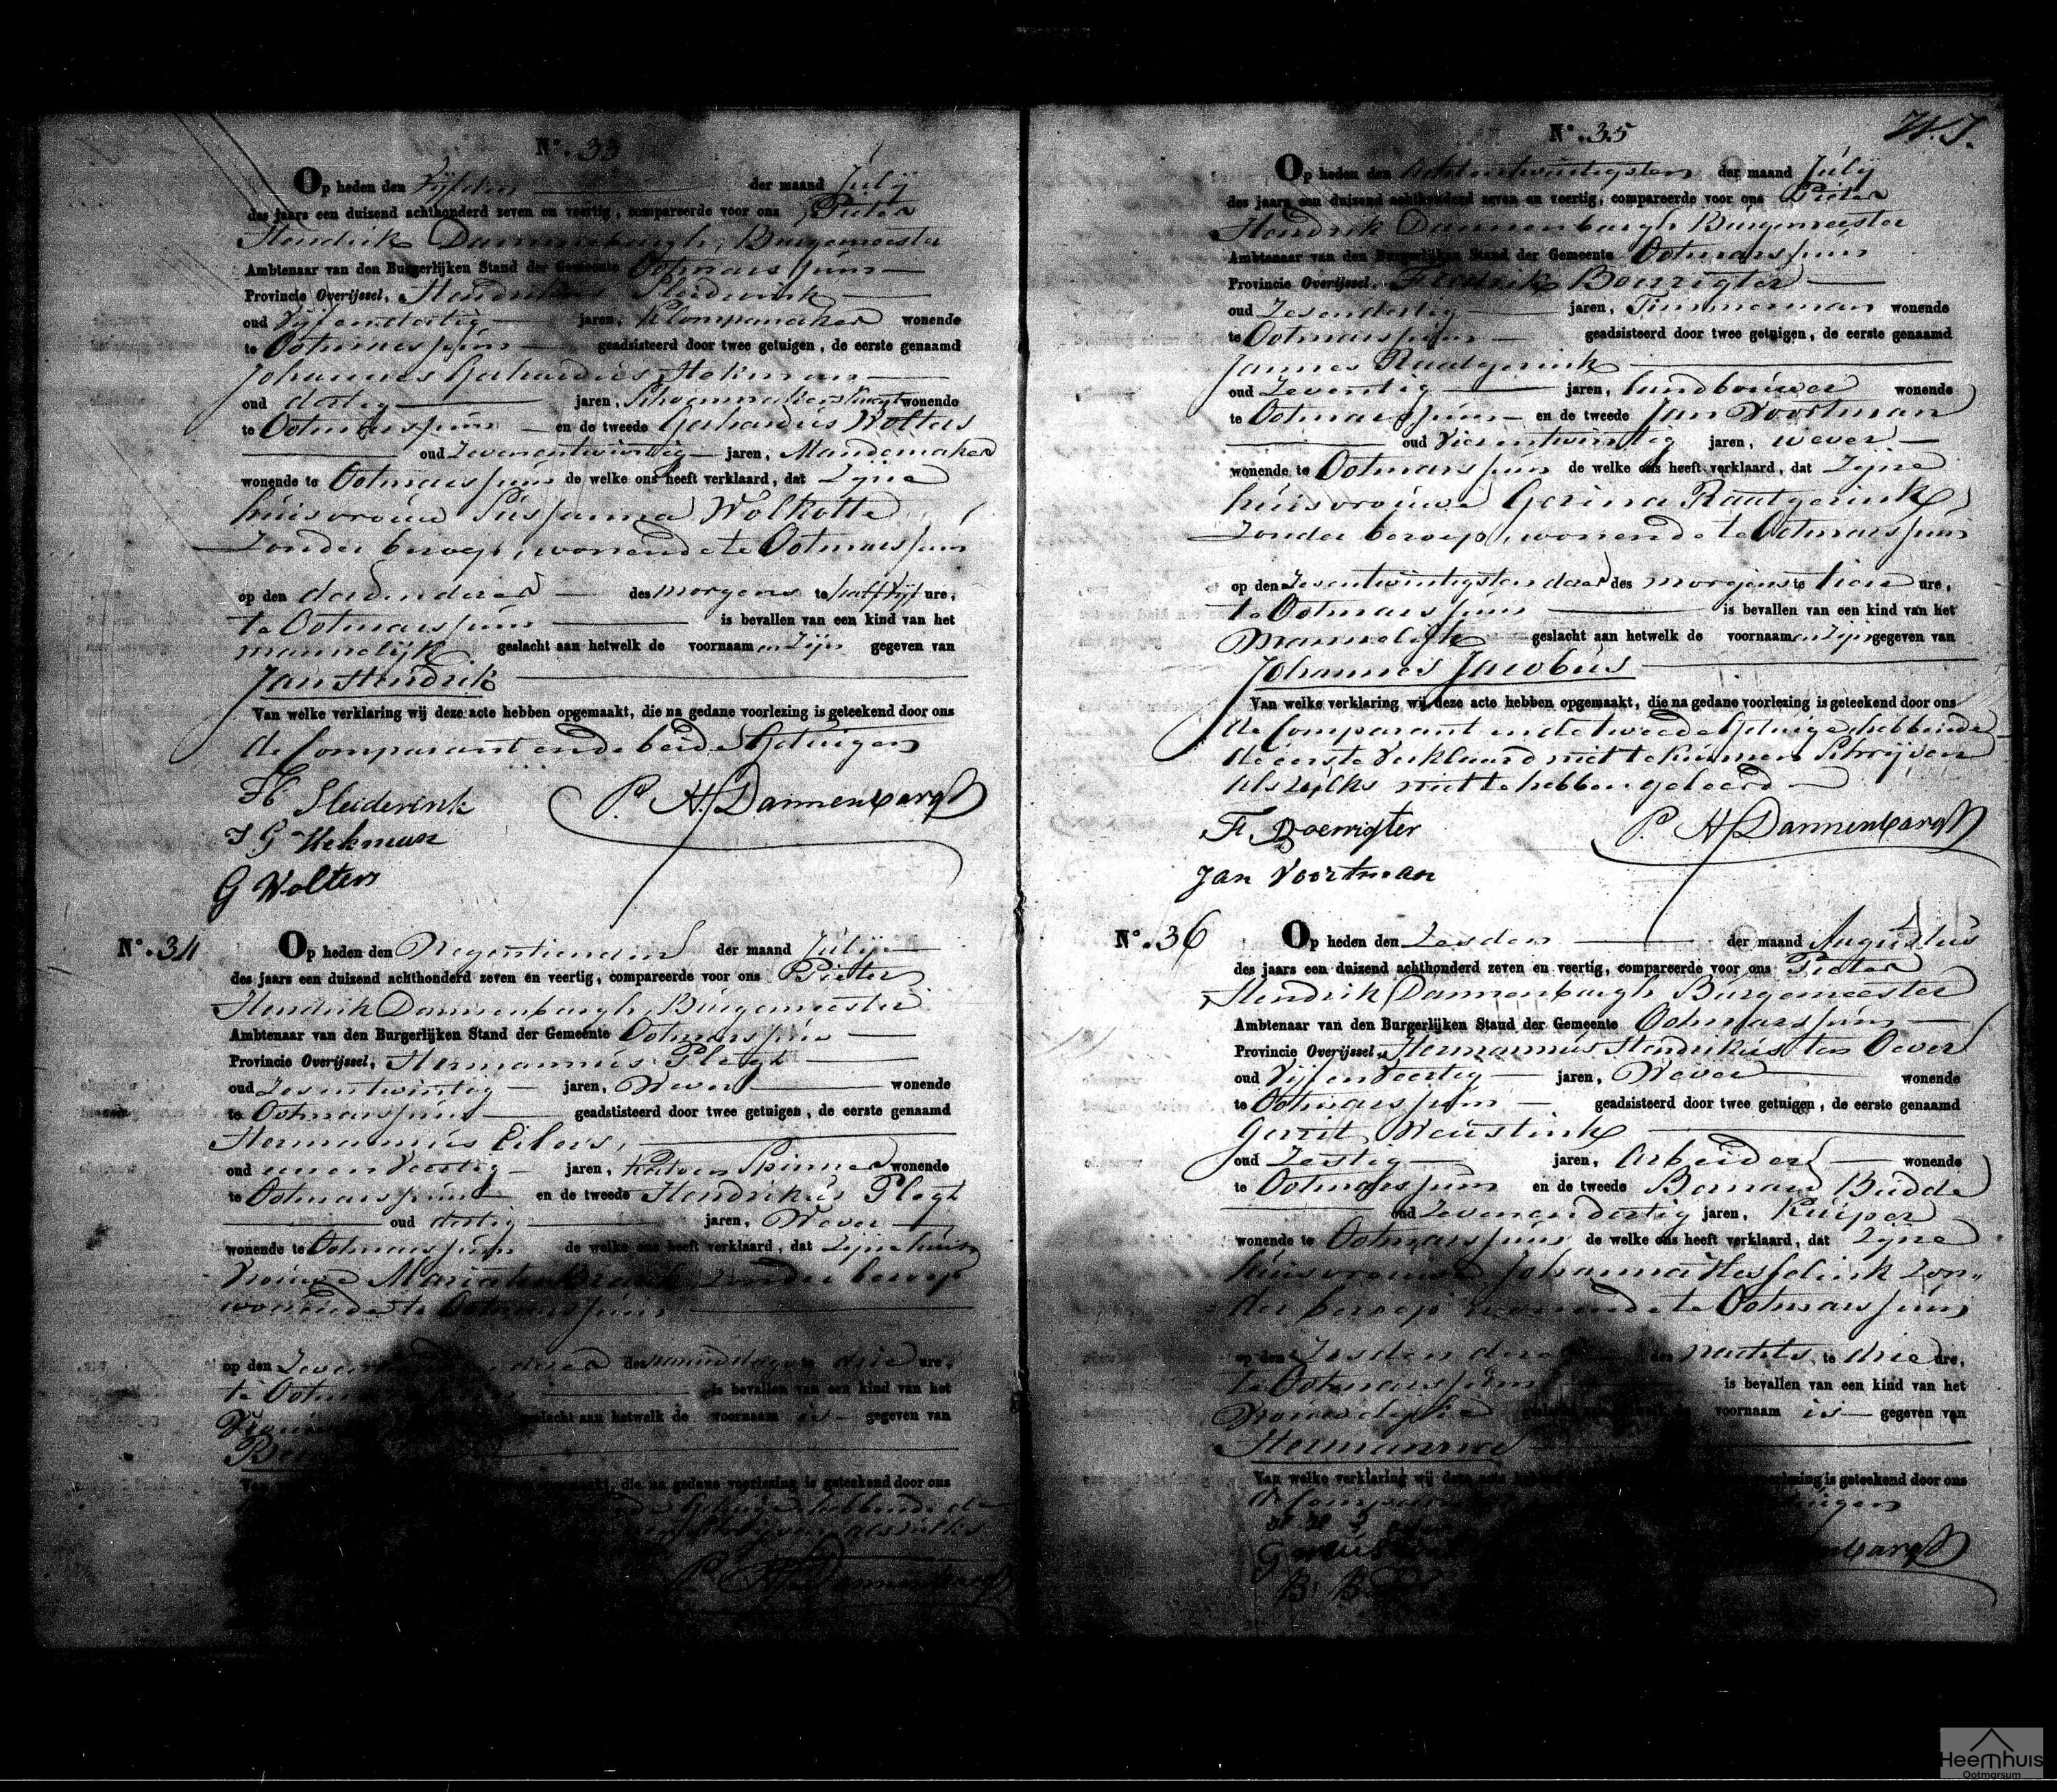 N°. 33
Op heden den Vijfden der maand Julij
des jaars een duizend achthonderd zeven en veertig, compareerde voor ons Pieter
Hendrik Dannenbargh, Burgemeester
Ambtenaar van den Burgerlijken Stand der Gemeente Ootmarssum
Provincie Overijssel, Hendrikus Sleiderink
oud Vijfendertig jaren, Klompmaker wonende
te Ootmarssum geadsisteerd door twee getuigen, de eerste genaamd
Johannes Gerhardus Hekman
oud dertig jaren, Schoenmakersknegt wonende
te Ootmarssum en de tweede Gerhardus Wolters
oud Zevenentwintig jaren, Mandemaker
wonende te Ootmarssum de welke ons heeft verklaard, dat Zijne
huisvrouw Susanna Wolkotte
Zonder beroep, wonende te Ootmarssum
op den derdendezer des morgens te half Vijf ure,
te Ootmarssum is bevallen van een kind van het
mannelijk geslacht aan hetwelk de voornaamen Zijn gegeven van
Jan Hendrik
Van welke verklaring wij deze acte hebben opgemaakt, die na gedane voorlezing is geteekend door ons
de Comparant en de beide Getuigen
H Sleiderink P. H. Dannenbargh
J G Hekman
G Wolters
N°. 34
Op heden den Negentienden der maand Julij
des jaars een duizend achthonderd zeven en veertig, compareerde voor ons Pieter
Hendrik Dannenbargh, Burgemeester
Ambtenaar van den Burgerlijken Stand der Gemeente Ootmarssum
Provincie Overijssel, Hermannus Plegt
oud Zesentwintig jaren, Wever wonende
te Ootmarssum geadstisteerd door twee getuigen, de eerste genaamd
Hermannus Eilers,
oud eenenveertig jaren, Katoen Spinner wonende
te Ootmarssum en de tweede Hendrikus Plegt
oud dertig jaren, Wever
wonende te Ootmarssum de welke ons heeft verklaard, dat Zijne huis
Vrouwe Maria Zonder beroep
wonende te Ootmarssum
op den dezer des namiddags te drie ure,
te is bevallen van een kind van het
geslacht aan hetwelk de voornaam is gegeven van
die na gedane voorlezing is geteekend door ons
Getuige hebbende de
P. H. Dannenbargh
N°. 35
Op heden den Achtentwintigsten der maand Julij
des jaars een duizend achthonderd zeven en veertig, compareerde voor ons Pieter
Hendrik Dannenbargh Burgemeester
Ambtenaar van den Burgerlijken Stand der Gemeente Ootmarssum
Provincie Overijssel, Fredrik Boerrigter
oud Zesendertig jaren, Timmerman wonende
te Ootmarssum geadsisteerd door twee getuigen, de eerste genaamd
Jannes Raatgerink
oud Zeventig jaren, landbouwer wonende
te Ootmarssum en de tweede Jan Voortman
oud Vierentwintig jaren, wever
wonende te Ootmarssum de welke ons heeft verklaard, dat Zijne
huisvrouwe Gerina Raatgerink
Zonder beroep, wonende te Ootmarssum
op den Zesentwintigsten dezer des morgens te tien ure,
te Ootmarssum is bevallen van een kind van het
Mannelijke geslacht aan hetwelk de voornaamen Zijn gegeven van
Johannes Jacobus
Van welke verklaring wij deze acte hebben opgemaakt, die na gedane voorlezing is geteekend door ons
de Comparant en de tweede Getuige hebbende
de eerste Verklaard niet te kunnen Schrijven
als zulks niet te hebben geleerd
F Boerrigter P. H. Dannenbargh
Jan Voortman
N°. 36
Op heden den Zesden der maand Augustus
des jaars een duizend achthonderd zeven en veertig, compareerde voor ons Pieter
Hendrik Dannenbargh Burgemeester
Ambtenaar van den Burgerlijken Stand der Gemeente Ootmarssum
Provincie Overijssel, Hermannus Hendrikus ten Oever
oud Vijfenveertig jaren, Wever wonende
te Ootmarssum geadsisteerd door twee getuigen, de eerste genaamd
Gerrit Weustink
oud Zestig jaren, Arbeider wonende
te Ootmarssum en de tweede Bernard Budde
oud Zevenendertig jaren, Kuiper
wonende te Ootmarssum de welke ons heeft verklaard, dat Zijne
huisvrouwe Johanna Hesselink Zon„
der beroep wonende te Ootmarssum
op den Zesden dezer des nachts te drie ure,
te Ootmarssum is bevallen van een kind van het
Vrouwelijke voornaam is gegeven van
Van welke verklaring wij deze acte voorlezing is geteekend door ons
de Comparant
Heemhuis
Ootmarsum